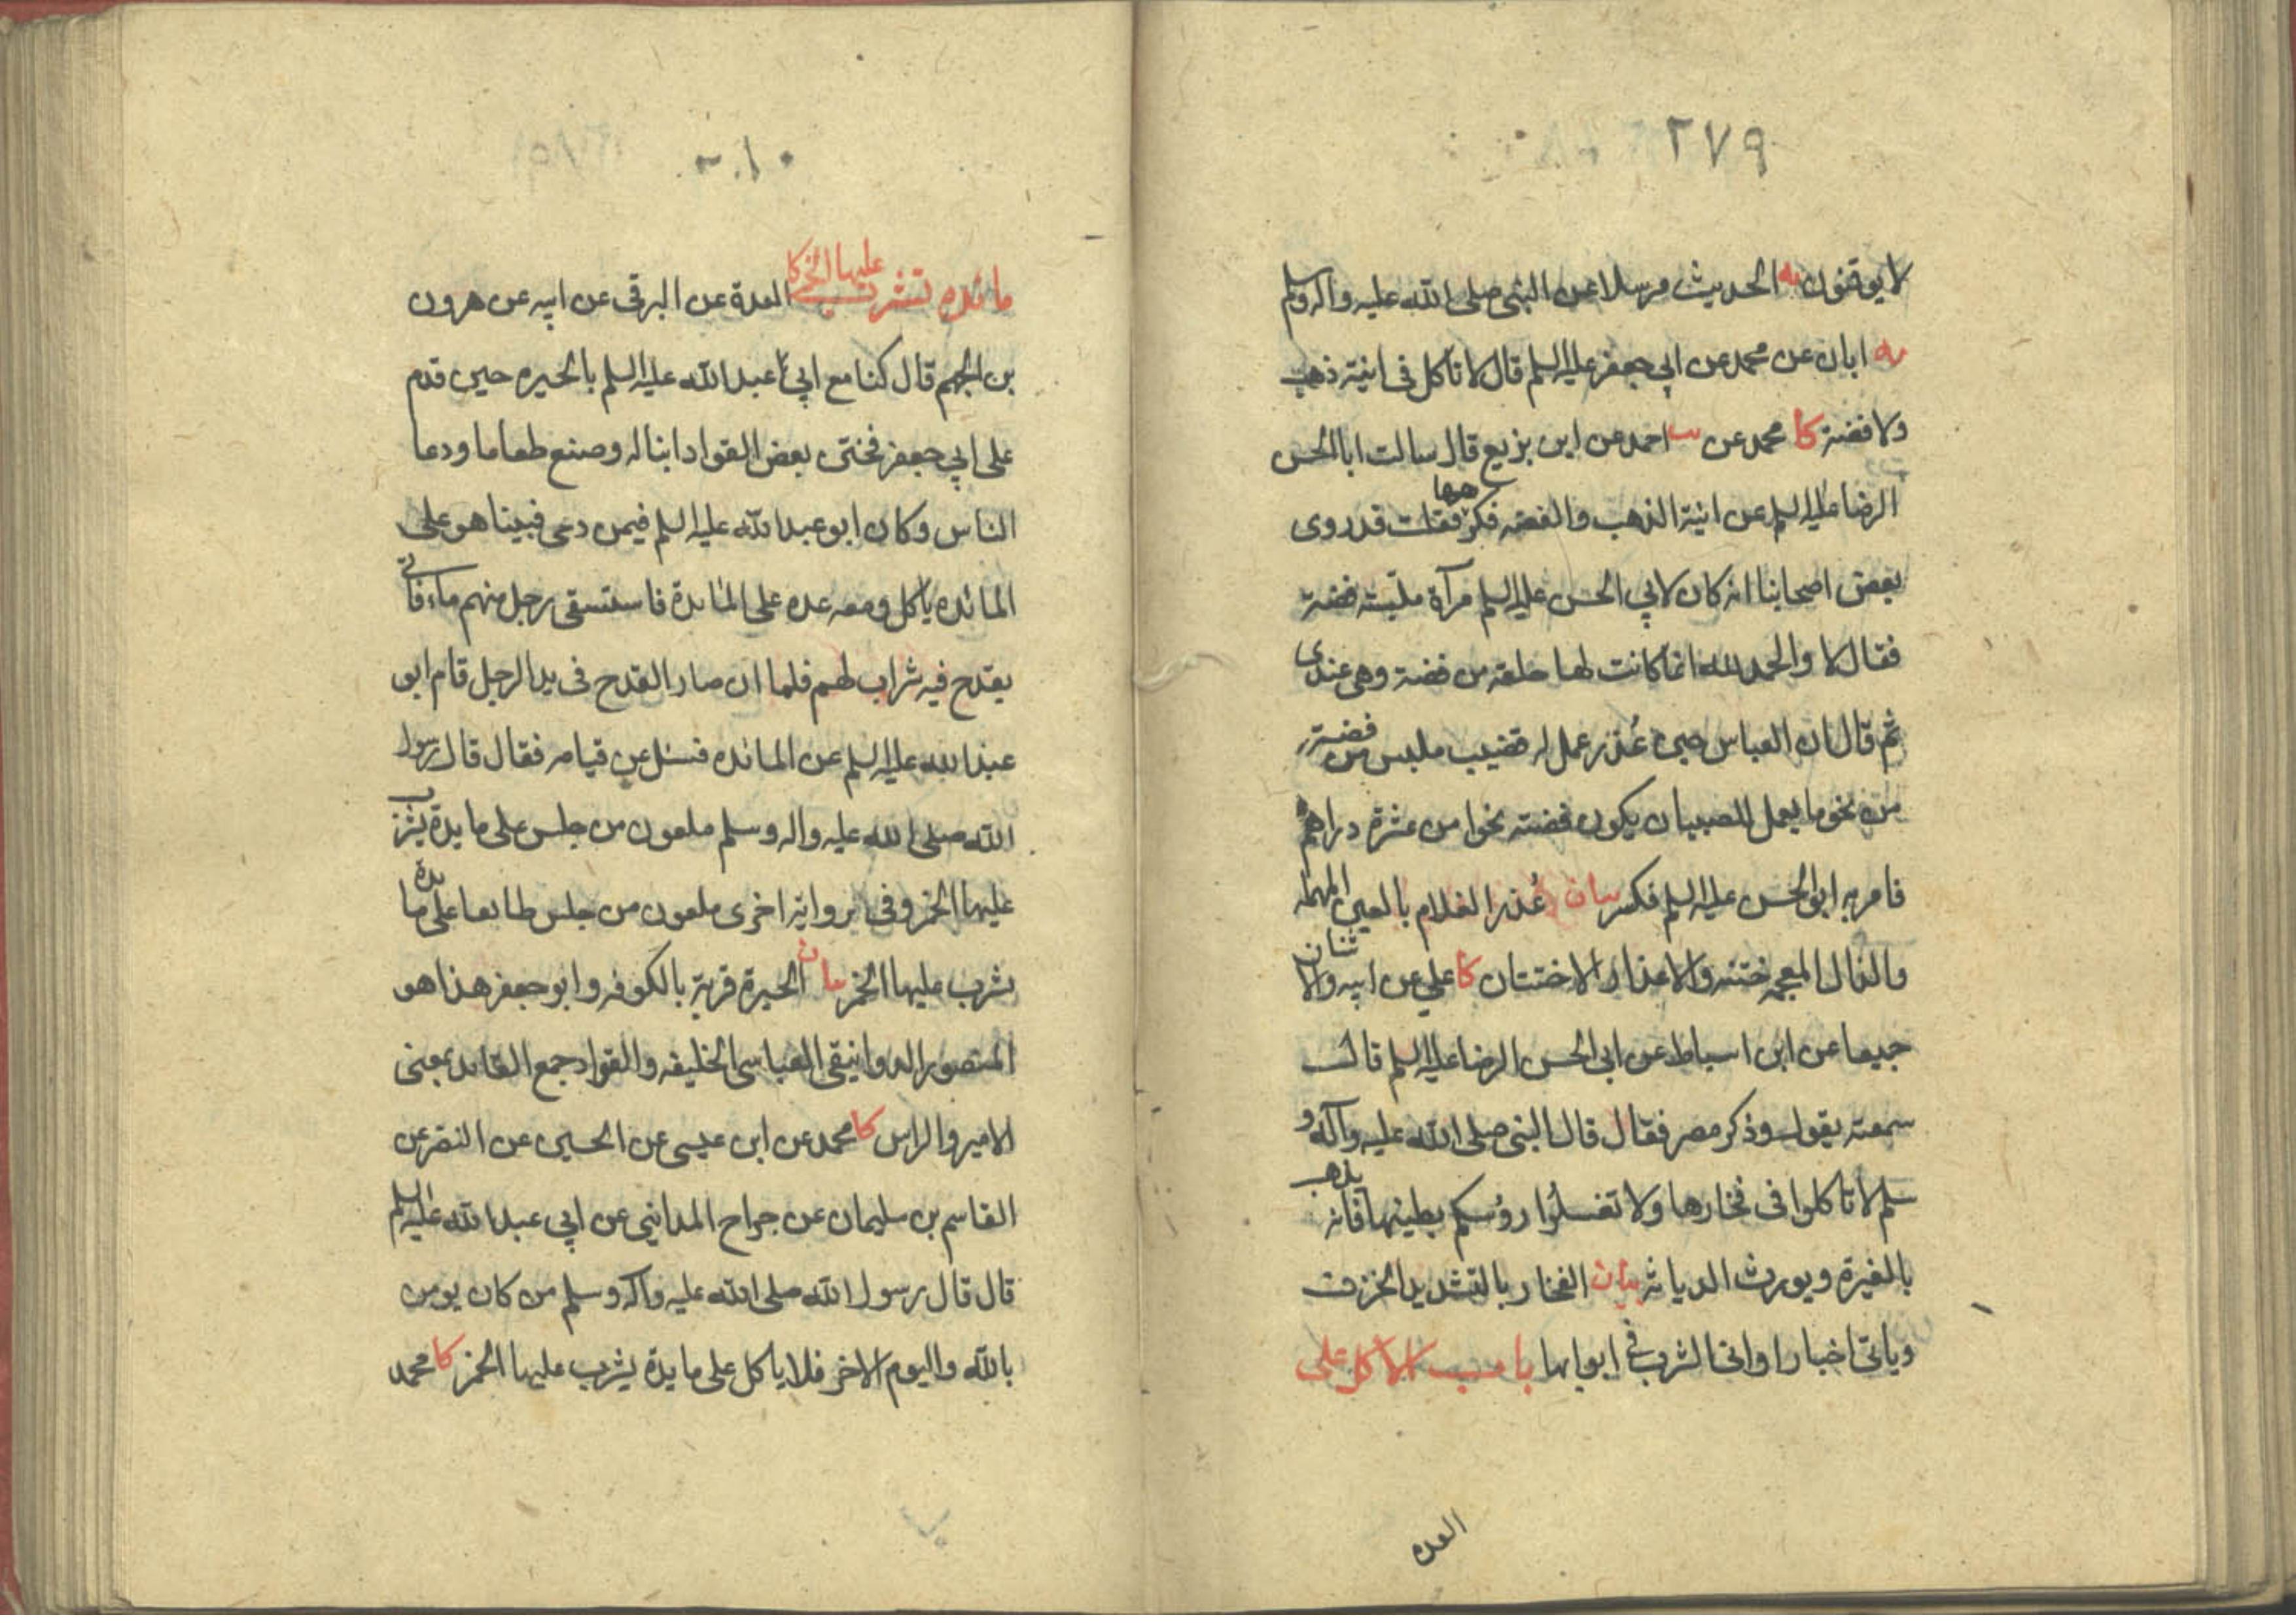 ٢٧٩
لا يوقنون يه الحديث مرسلا عن النبي صلى الله عليه واله وسلم
يه ابان عن محمد عن ابي جعفر عليه السلم قال لا تاكل في انية ذهب
ولا فضة كا محمد عن احمد عن ابن بزيع قال سالت ابا الحسن
الرضا عليه السلم عن انية الذهب والفضه فكرههما فقلت قد روى
بعض اصحابنا انه كان لابي الحسن عليه السلم مرآة ملبسة فضة
فقال لا والحمد لله انما كانت لها حلقة من فضة وهي عندى
ثم قال ان العباس حين عُذر عمل له قضيب ملبس من فضة
من نحو ما يعمل للصبيان يكون فضته نحوا من عشرة دراهم
فامر به ابو الحسن عليه السلم فكسر بيان عُذر الغلام بالعين المهملة
والذال المعجمه ختنه والاعذار الاختتان كا علي عن ابيه والاثنان
جميعا عن ابن اسباط عن ابي الحسن الرضا عليه السلم قال
سمعته يقول وذكر مصر فقال قال النبي صلى الله عليه وآله و
سلم لا تاكلوا في فخارها ولا تغسلوا رؤسكم بطينها فانه يذهب
بالغيرة ويورث الدياثه بيان الفخار بالتشديد الخزف
وياتي اخبار اواني الشرب في ابوابها باب الاكل على
العده
مائده تشرب عليها الخمر كا العدة عن البرقي عن ابيه عن هرون
بن الجهم قال كنا مع ابي عبد الله عليه السلم بالحيره حين قدم
على ابي جعفر فختن بعض القواد ابنا له وصنع طعاما ودعا
الناس وكان ابو عبد الله عليه السلم فيمن دعى فبينا هو على
المائده ياكل ومعه عده على المائدة فاستسقى رجل منهم ماء فاتي
بقدح فيه شراب لهم فلما ان صار القدح في يد الرجل قام ابو
عبد الله عليه السلم عن المائده فسئل عن قيامه فقال قال رسول
الله صلى الله عليه واله وسلم ملعون من جلس على مايدة يشرب
عليها الخمر وفي رواية اخرى ملعون من جلس طايعا على مايدة
يشرب عليها الخمر بيان الحيرة قرية بالكوفه وابو جعفر هذا هو
المنصور الدوانيقي العباسي الخليفه والقواد جمع القايد بمعنى
الامير والراس كا محمد عن ابن عيسى عن الحسين عن النضر عن
القاسم بن سليمان عن جراح المدايني عن ابي عبد الله عليه السلم
قال قال رسول الله صلى الله عليه وآله وسلم من كان يومن
بالله واليوم الاخر فلا ياكل على مايدة يشرب عليها الخمر كا محمد